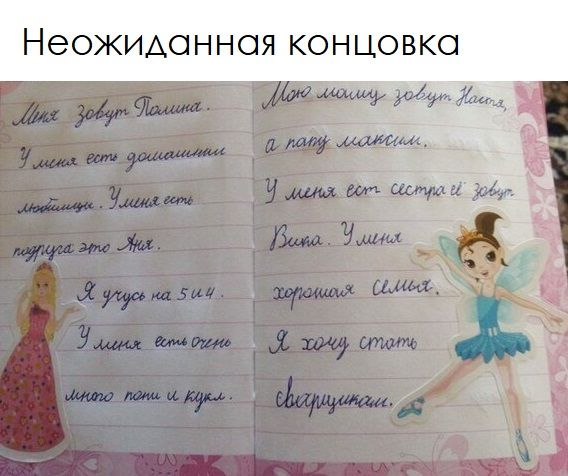 Неожиданная концовка
Меня зовут Полина.
У меня есть домашнии
любимцы. У меня есть
подруга это Аня.
Я учусь на 5 и 4.
У меня есть очень
много пони и кукл.
Мою маму зовут Настя,
а папу максим.
У меня ест сестра её зовут
Вика. У меня
хорошая семья.
Я хочу стать
сварщикам.